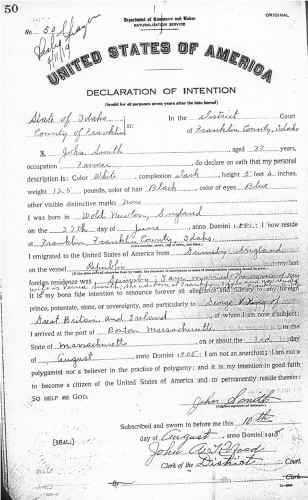 50
ORIGINAL
Department of Commerce and Labor
NATURALIZATION SERVICE
No.
UNITED STATES OF AMERICA
DECLARATION OF INTENTION
(Invalid for all purposes seven years after the date hereof)
State of Idaho
In the District Court
County of Franklin ss:
of Franklin County, Idaho
I, John Smith, aged 37 years,
occupation Farmer, do declare on oath that my personal
description is: Color White, complexion dark, height 5 feet 6 inches,
weight 125 pounds, color of hair Black, color of eyes Blue
other visible distinctive marks None
I was born in Wold Newton, England
on the 27th day of June, anno Domini 1881; I now reside
at Franklin Franklin County, Idaho.
I emigrated to the United States of America from Grimsby England
on the vessel Republic; my last
foreign residence was Grimsby. I am married
It is my bona fide intention to renounce forever all allegiance and fidelity to any foreign
prince, potentate, state, or sovereignty, and particularly to George V King of
Great Britain and Ireland, of whom I am now subject;
I arrived at the port of Boston Massachusetts, in the
State of Massachusetts, on or about the 3rd day
of August, anno Domini 1905; I am not an anarchist; I am not a
polygamist nor a believer in the practice of polygamy; and it is my intention in good faith
to become a citizen of the United States of America and to permanently reside therein:
SO HELP ME GOD.
John Smith
Subscribed and sworn to before me this 10th
[SEAL] day of August, anno Domini 191
John
Clerk of the District Court.
Clerk.